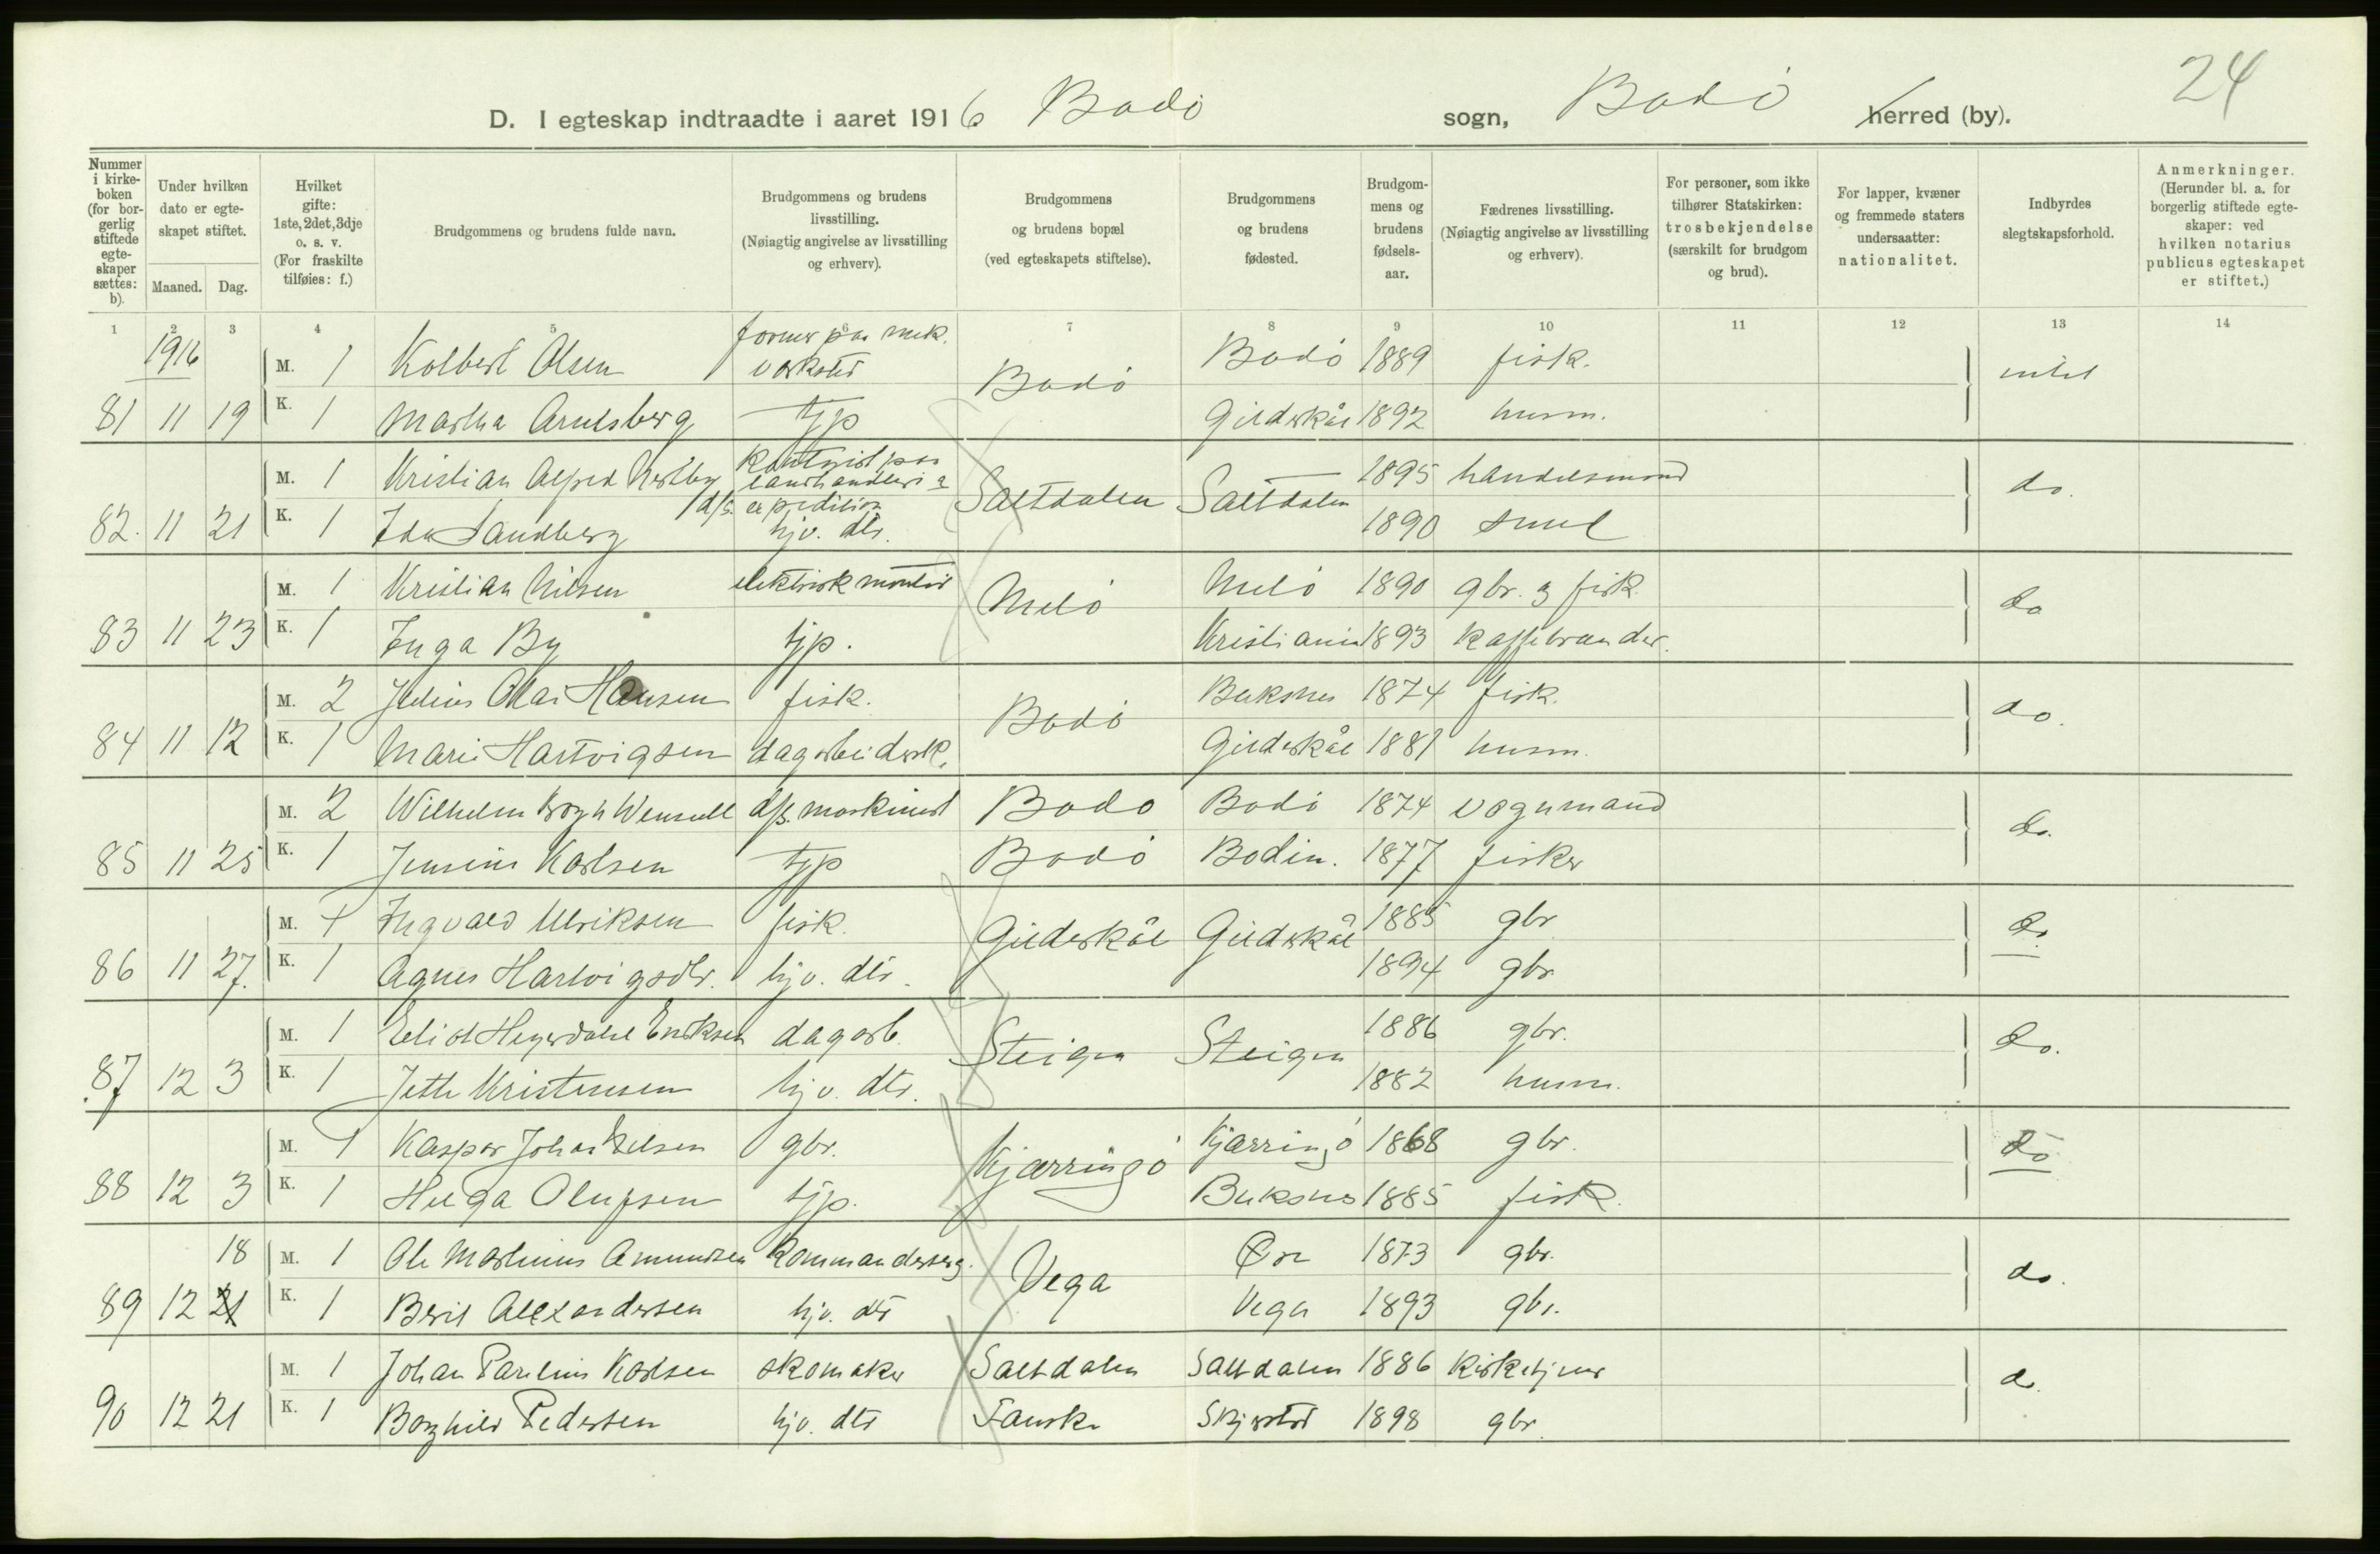 24
D. I egteskap indtraadte i aaret 1916 Bodö sogn, Bodö herred (by).
Nummer i kirkeboken (for borgerlig stiftede egteskaper sættes: b).
Under hvilken dato er egteskapet stiftet.
Maaned. Dag.
Hvilket gifte: 1ste, 2det, 3dje o. s. v. (For fraskilte tilføies: f.)
Brudgommens og brudens fulde navn.
Brudgommens og brudens livsstilling. (Nøiagtig angivelse av livsstilling og erhverv).
Brudgommens og brudens bopæl (ved egteskapets stiftelse).
Brudgommens og brudens fødested.
Brudgommens og brudens fødselsaar.
Fædrenes livsstilling. (Nøiagtig angivelse av livsstilling og erhverv).
For personer, som ikke tilhører Statskirken: trosbekjendelse (særskilt for brudgom og brud).
For lapper, kvæner og fremmede staters undersaatter: nationalitet.
Indbyrdes slegtskapsforhold.
Anmerkninger. (Herunder bl. a. for borgerlig stiftede egteskaper: ved hvilken notarius publicus egteskapet er stiftet.)
1 2 3 4 5 6 7 8 9 10 11 12 13 14
1916 M. 1 Kolbert Olsen former paa mek. verksted Bodö Bodö 1889 fisk. intet
81 11 19 K. 1 Martha Arntsberg tjp Gildeskål 1892 husm.
M. 1 Kristian Alfred Kontorist paa landhandleri & d/s. expedition Saltdalen Saltdalen 1895 handelsmand do.
82. 11 21 K. 1 Ida Sandberg hjv. dtr. 1890 smed
M. 1 Kristian Nilsen elektrisk montör Melö Melö 1890 gbr. & fisk. do
83 11 23 K. 1 Inga By tjp. Kristiania 1893 kaffebrænder.
M. 2 Julius Olai Hansen fisk. Bodö Buksnes 1874 fisk. do.
84 11 12 K. 1 Marie Hartvigsen dagarbeidersk. Gildeskål 1881 husm.
M. 2 Wilhelm Krogh d/s. maskinist Bodö Bodö 1874 vognmand do.
85 11 25 K. 1 Jensine Karlsen tjp Bodö Bodin. 1877 fisker
M. 1 Ingvald Ulriksen fisk. Gildeskål Gildeskål 1885 gbr do
86 11 27. K. 1 Agnes Hartvigsdtr. hjv. dtr. 1894 gbr
M. 1 Heyerdahl Eriksen dagarb. Steigen Steigen 1886 gbr. do.
87 12 3 K. 1 Jette Kristensen hjv. dtr. 1882 husm.
M. 1 Kasper Johan gbr. Kjærringö Kjærringö 1868 gbr. do
88 12 3 K. 1 Helga Olufsen tjp. Buksnes 1885 fisk.
18 M. 1 Ole Martinus Amundsen Vega Øre 1873 gbr. do.
89 12 21 K. 1 Berit Alexandersen hjv. dtr Vega 1893 gbr.
M. 1 Johan Paulius Karlsen skomaker Saltdalen Saltdalen 1886 kirketjener do.
90 12 21 K. 1 Borghild Pedersen hjv. dtr Fauske Skjerstad 1898 gbr.